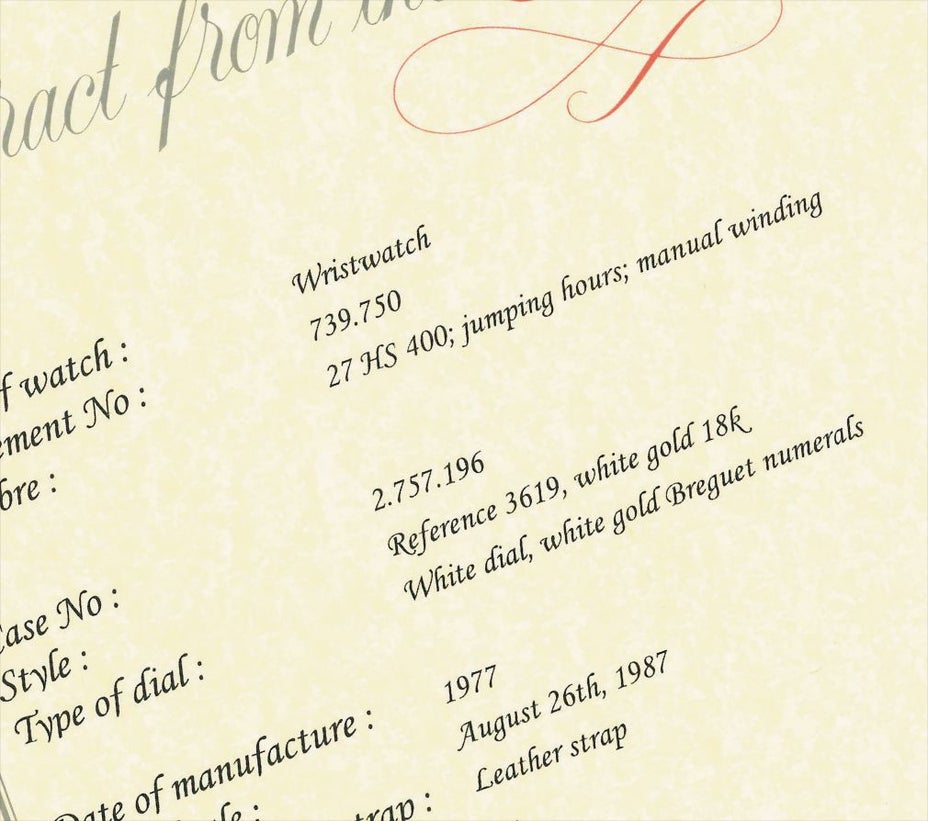 ract from the
f watch : Wristwatch
ement No : 739.750
bre : 27 HS 400; jumping hours; manual winding
Case No : 2.757.196
Style : Reference 3619, white gold 18k
Type of dial : White dial, white gold Breguet numerals
Date of manufacture : 1977
ale : August 26th, 1987
strap : Leather strap